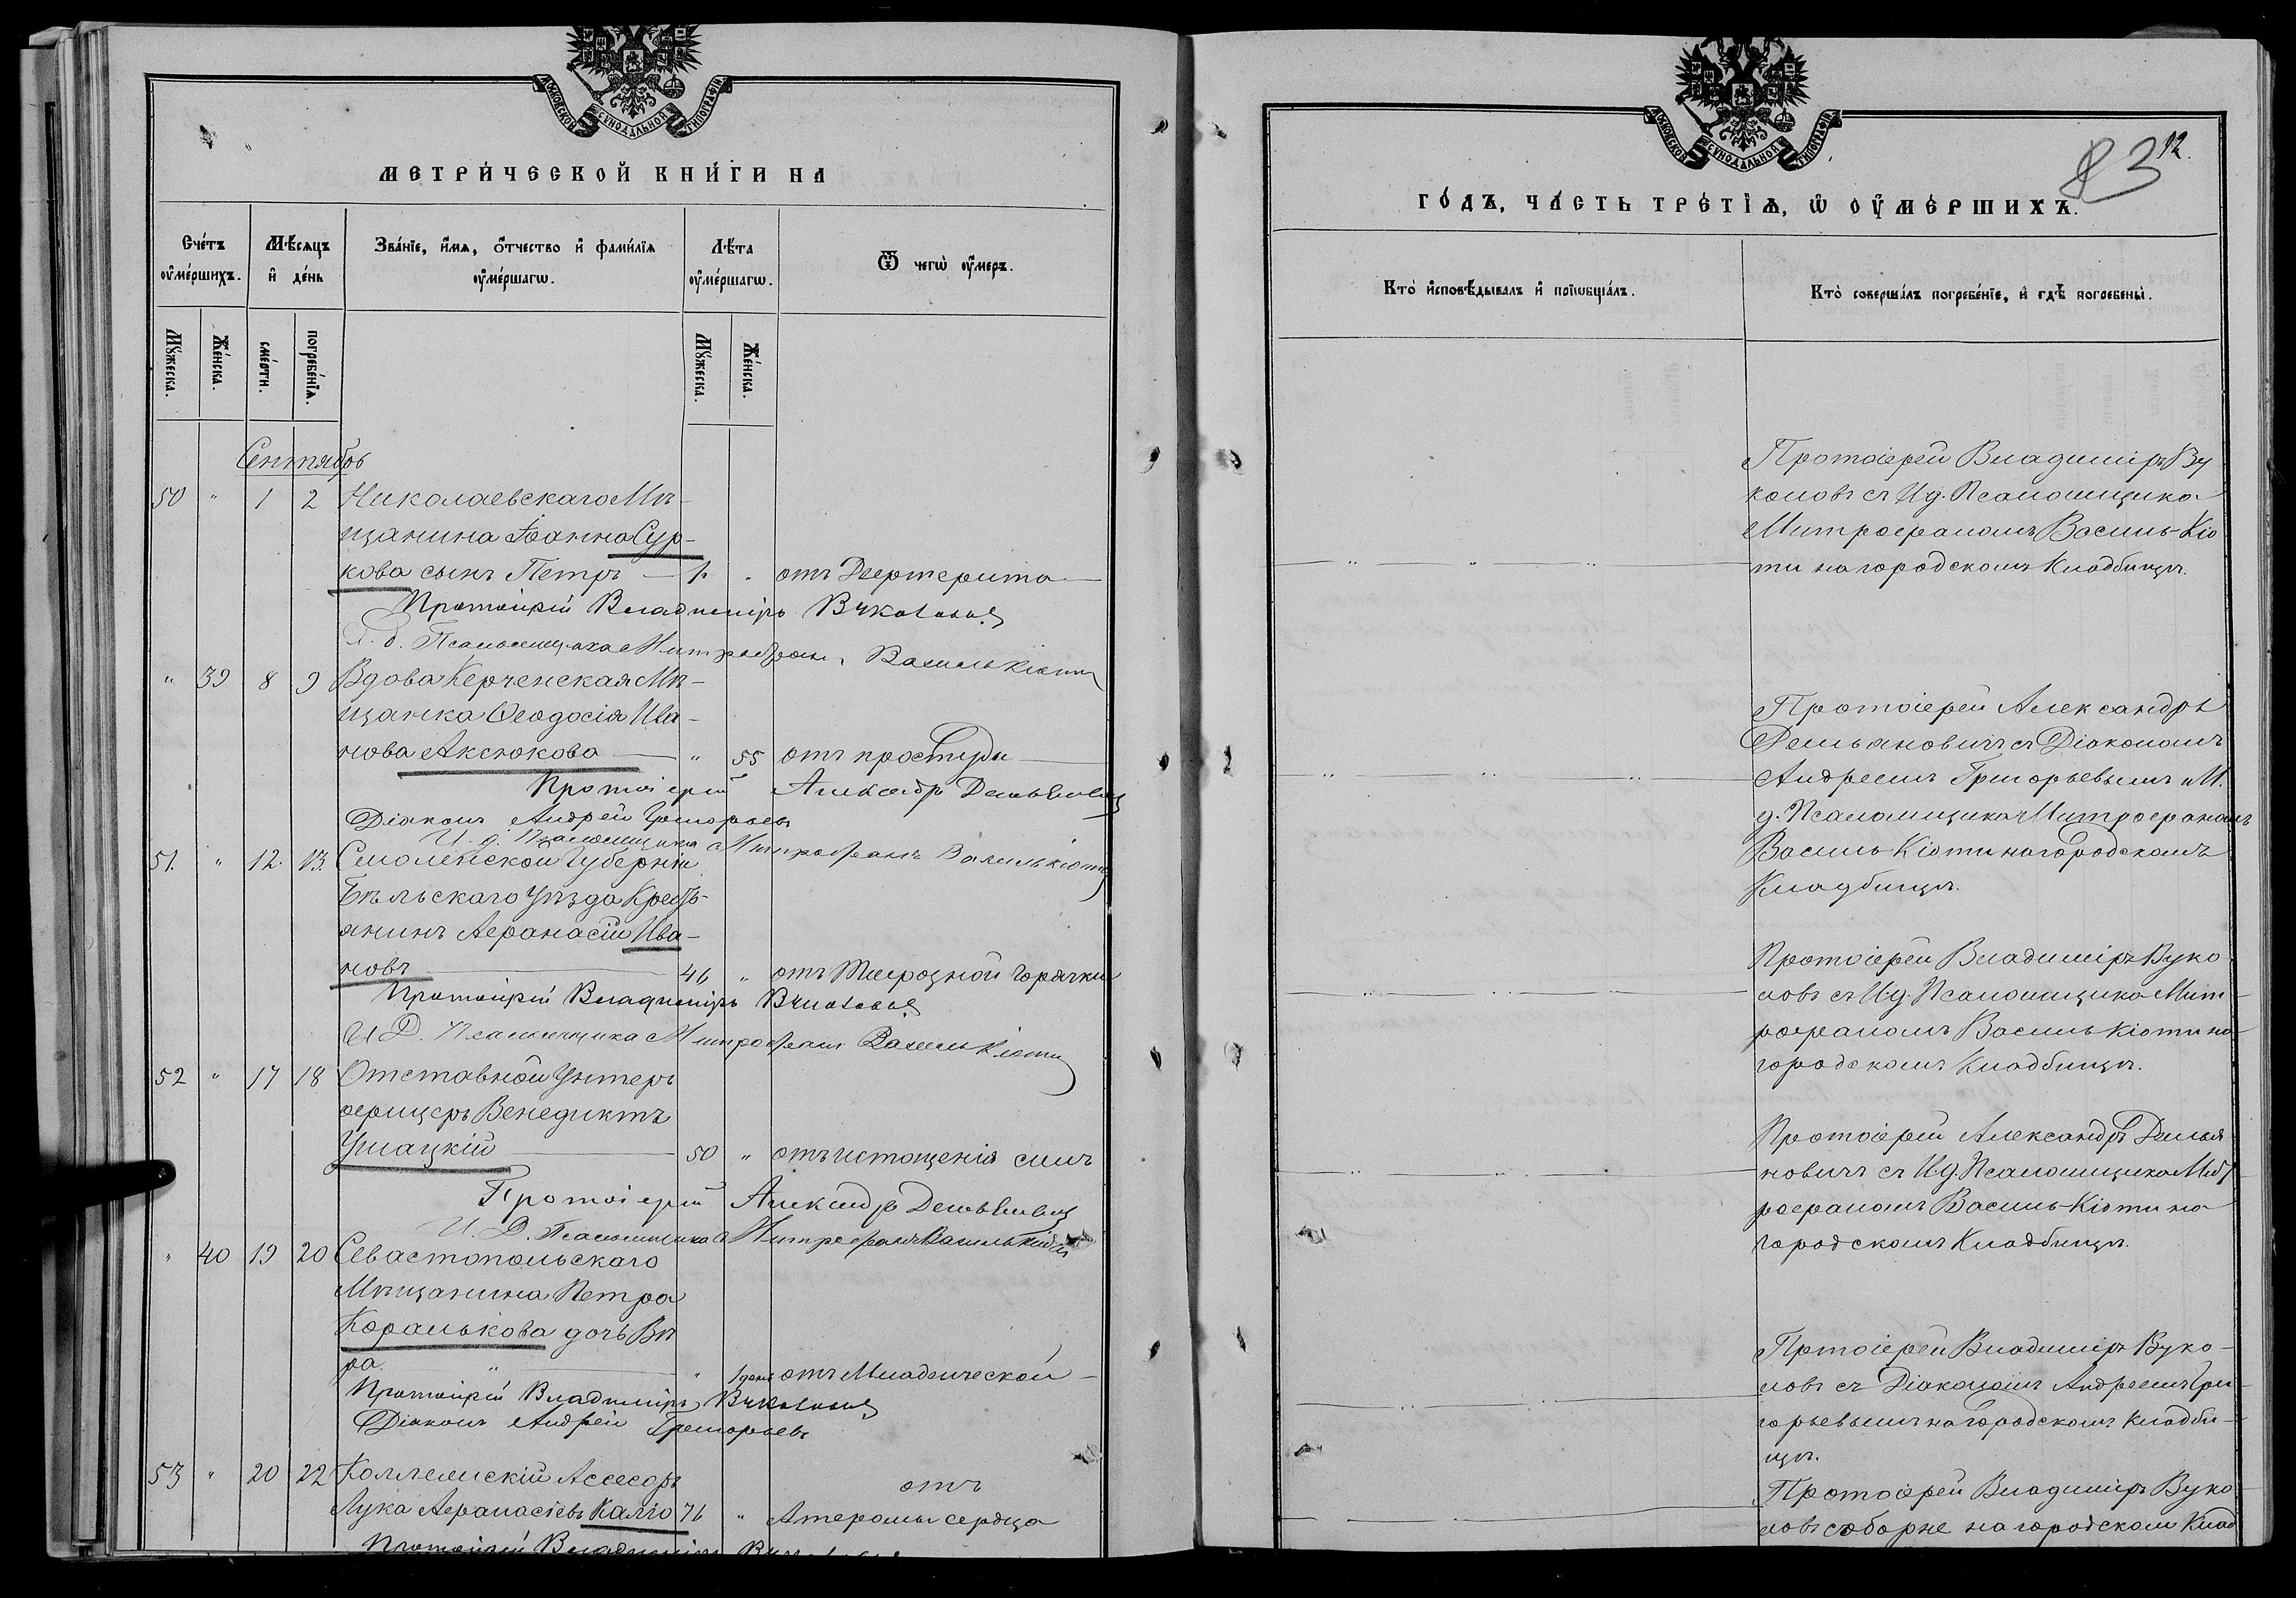 МОСКОВСКОЙ СѴНОДАЛЬНОЙ ТИПОГРАФІИ
МЕТРИ́ЧЕСКОЙ КНИ́ГИ НА
Сче́тъ оу҆ме́ршихъ.
Мѣ́сяцъ и҆ де́нь
Зва́нїе, и҆́мѧ, ѻ҆́тчество и҆ фами́лїѧ оу҆ме́ршагѡ.
Лѣ́та оу҆ме́ршагѡ.
Ѿ чегѡ̀ оу҆́меръ.
Мꙋ́жеска.
Же́нска.
сме́рти.
погребе́нїѧ.
Мꙋ́жеска.
Же́нска.
Сентябрь
50 " 1 2 Николаевскаго Мѣ-
щанина Іоанна Сур-
кова сынъ Петръ — 1. " отъ Дифтерита —
Протоіерей Владиміръ Вуколовъ
И. д. Псаломщика Митрофанъ Василькіоти
" 39 8 9 Вдова Керченская Мѣ-
щанка Ѳеодосія Ива-
нова Аксюкова — " 55 отъ простуды —
Протоіерей Александръ Демьяновичъ
Діаконъ Андрей Григорьевъ
И. д. Псаломщика Митрофанъ Василькіоти
51. " 12. 13. Смоленской Губерніи
Бѣльскаго Уѣзда Кресть-
янинъ Аѳанасій Ива-
новъ — 46 " отъ Тифозной горячки
Протоіерей Владиміръ Вуколовъ
И. Д. Псаломщика Митрофанъ Василькіоти
52 " 17 18 Отставной Унтеръ
офицеръ Венедиктъ
— 50 " отъ истощенія силъ
Протоіерей Александръ Демьяновичъ
И. Д. Псаломщика Митрофанъ Василькіоти
" 40 19 20 Севастопольскаго
Мѣщанина Петра
Каралькова дочь Вѣ
ра. " — " 1 день отъ Младенческой —
Протоіерей Владиміръ Вуколовъ
Діаконъ Андрей Григорьевъ
53 " 20 22 Коллежскій Ассесоръ отъ
Лука Аѳанасіевъ Калло 76 " Атеромы сердца
Протоіерей Владиміръ Вуколовъ
МОСКОВСКОЙ СѴНОДАЛЬНОЙ ТИПОГРАФІИ
83 12.
ГО́ДЪ, ЧА́СТЬ ТРЕ́ТІѦ, Ѡ҆ ОУ҆МЕ́РШИХЪ.
Кто̀ и҆сповѣ́дывалъ и҆ прїѡбща́лъ.
Кто̀ соверша́лъ погребе́нїе, и҆ гдѣ̀ погребены̀.
Протоіерей Владиміръ Ву
коловъ съ И д. Псаломщика
Митрофаномъ Василь-Кіо
ти на городскомъ Кладбищѣ.
Протоіерей Александръ
Демьяновичъ съ Діакономъ
Андреемъ Григорьевымъ и И.
д. Псаломщика Митрофаномъ
Василь-Кіоти на городскомъ
Кладбищѣ.
Протоіерей Владиміръ Вуко
ловъ съ И. д. Псаломщика Мит-
рофаномъ Василь Кіоти на
городскомъ Кладбищѣ.
Протоіерей Александръ Демья
новичъ съ И. д. Псаломщика Мит
рофаномъ Василь-Кіоти на
городскомъ Кладбищѣ.
Пртоіерей Владиміръ Вуко-
ловъ съ Діакономъ Андреемъ Гри-
горьевымъ на городскомъ кладби-
щѣ.
Протоіерей Владиміръ Вуко
ловъ соборне на городскомъ Клад